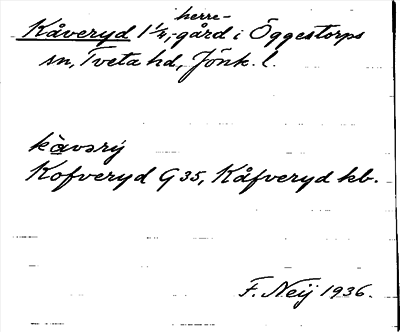 Kåveryd 1 1/4, herre-gård i Öggestorps
sn, Tveta hd, Jönk. l.
kàvsrý
Kofveryd G 35, Kåfveryd kb.
F. Neij 1936.